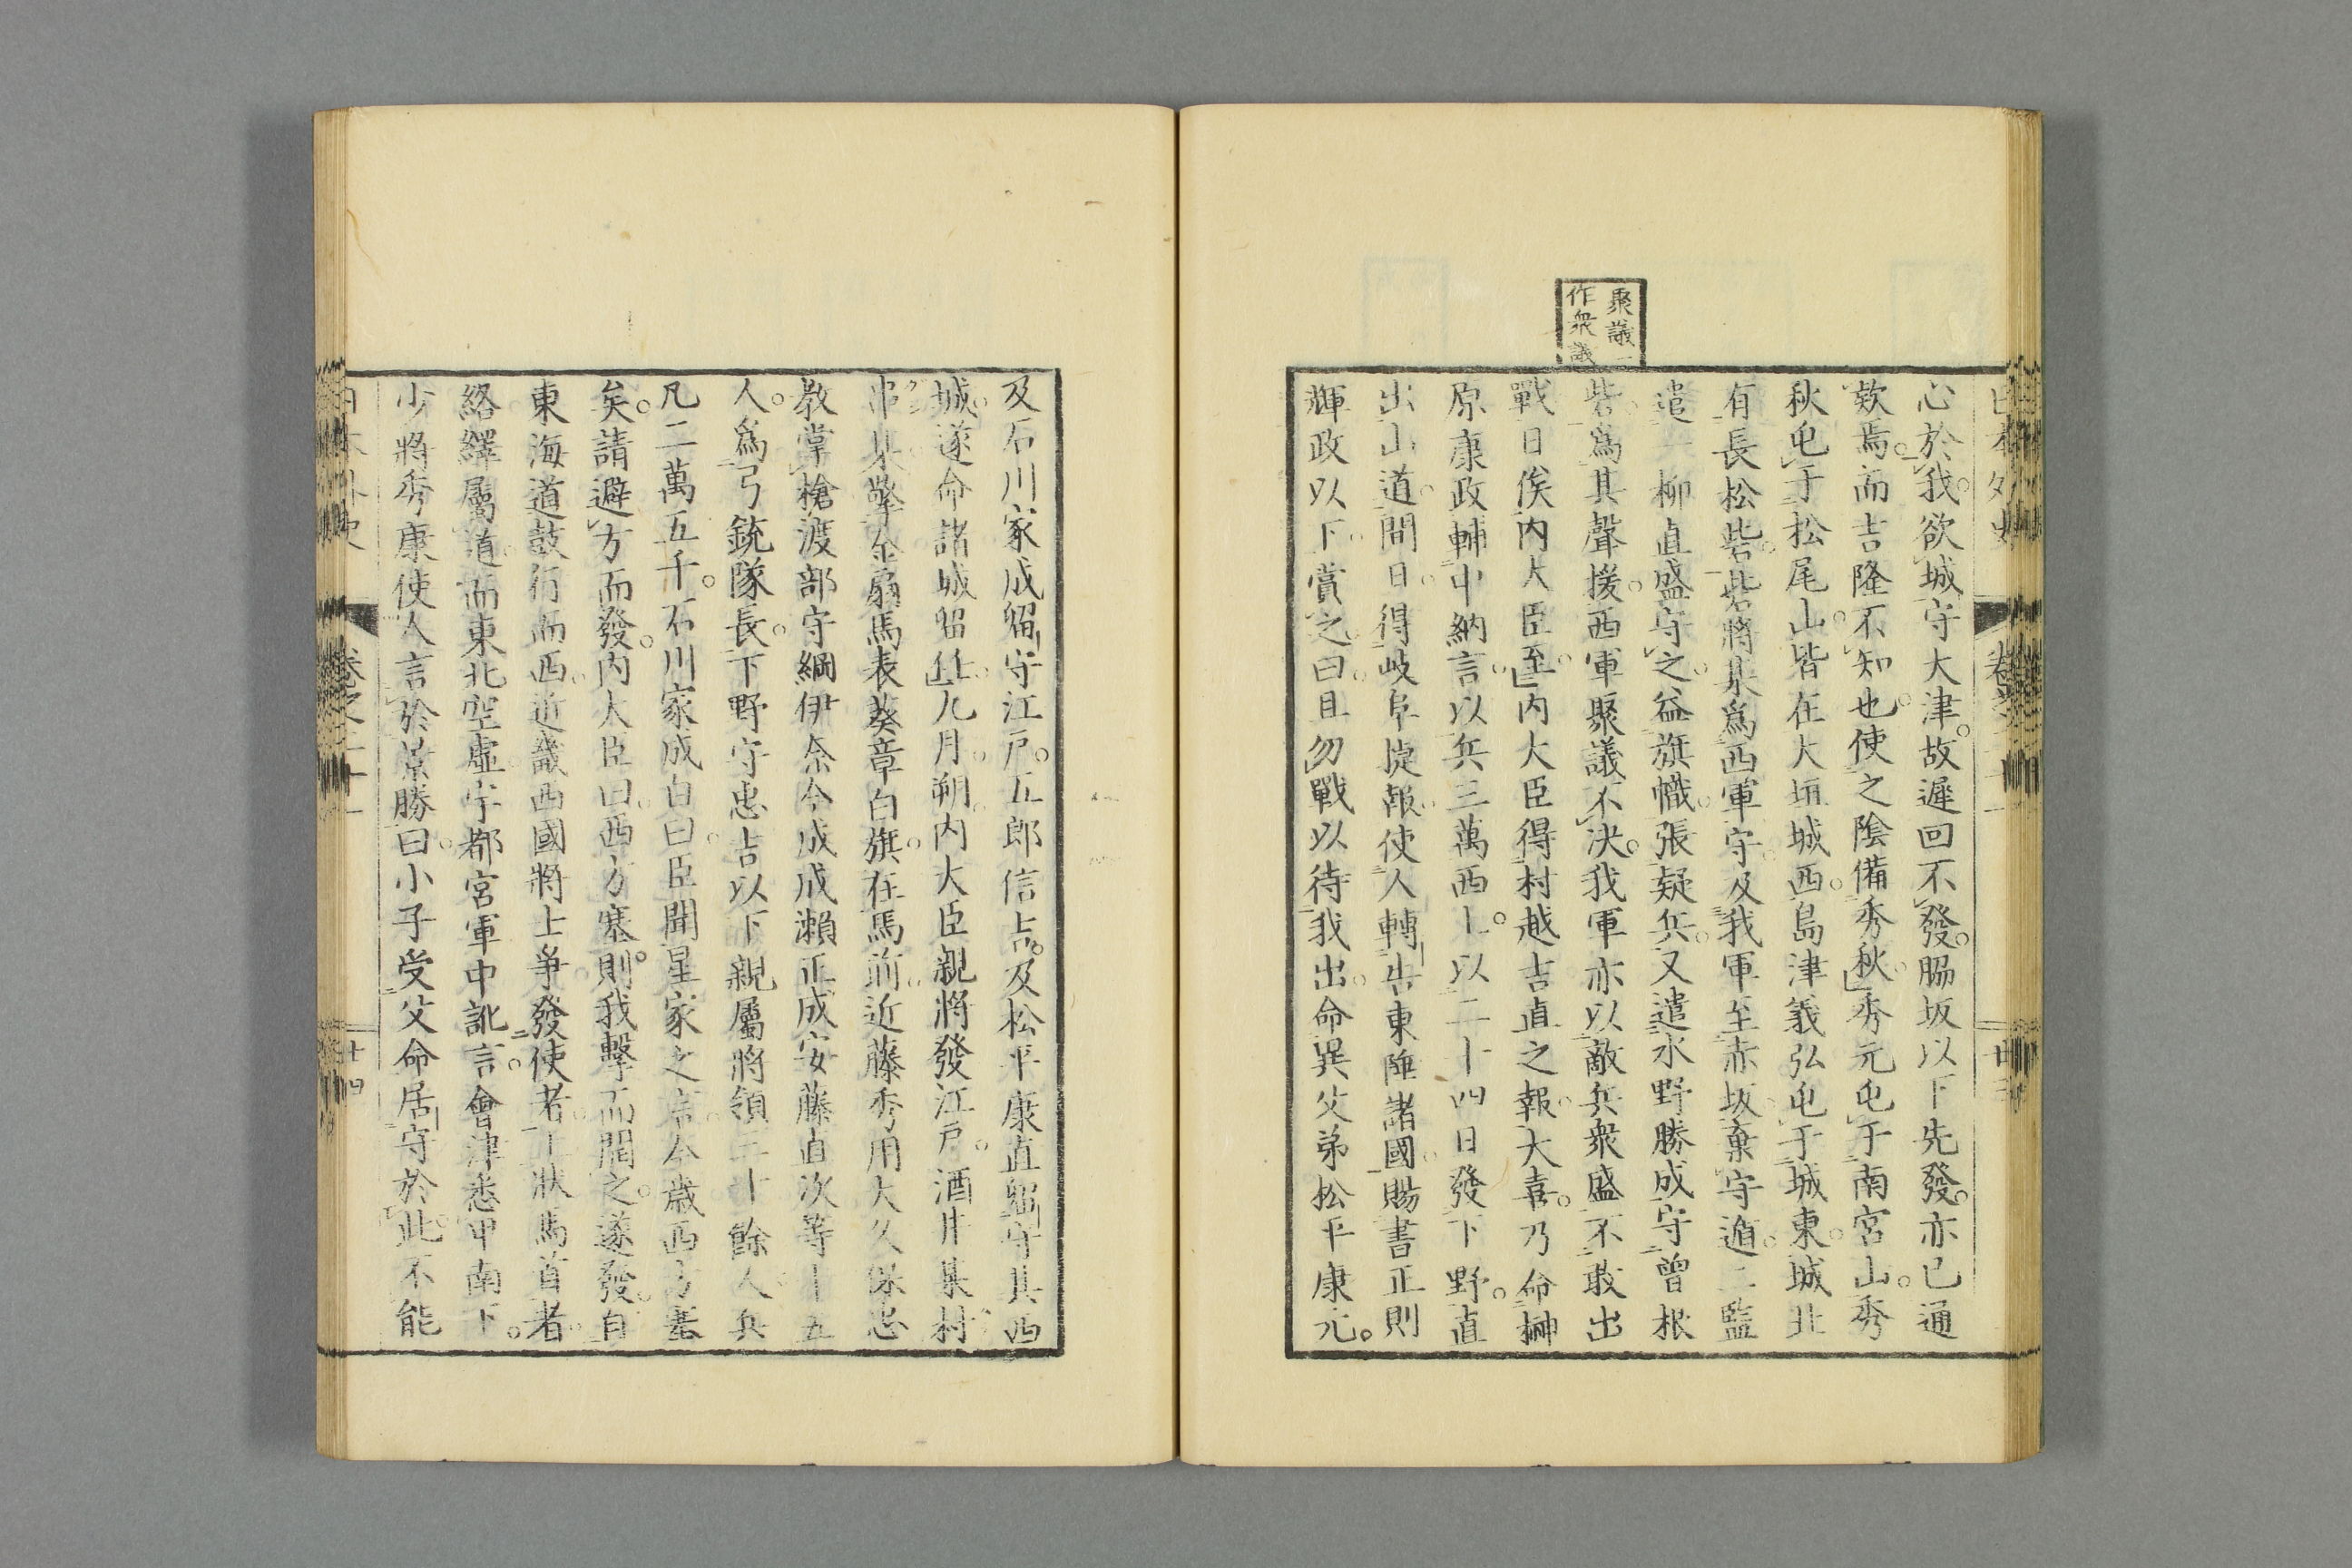 聚議一
作衆議
心於我。欲城守大津。故遲回不發。脇坂以下先發。亦已通
欵焉。而吉隆不知也。使之陰備秀秋。秀元屯于南宮山。秀
秋屯于松尾山。皆在大垣城西。島津義弘屯于城東。城北
有長松砦。砦將某爲西軍守。及我軍至赤坂。棄守遁。二監
遣一柳直盛守之。益旗幟。張疑兵。又遣水野勝成守曾根
砦。爲其聲援。西軍聚議不決。我軍亦以敵兵衆盛。不敢出
戰。日俟内大臣至。内大臣得村越吉直之報。大喜。乃命榊
原康政輔中納言。以兵三萬西上。以二十四日發下野。直
出山道。間日。得岐阜捷報。使人轉告東陲諸國。賜書正則
輝政以下。賞之。曰。且勿戰以待我出。命異父弟松平康元。
及石川家成留守江戸。五郎信吉。及松平康直留守其西
城。遂命諸城留任。九月朔。内大臣親將發江戸。酒井某村
串某擎金扇馬表。葵章白旗。在馬前。近藤秀用大久保忠
教掌槍。渡部守綱伊奈令成成瀬正成安藤直次等十五
人。爲弓銃隊長。下野守忠吉以下。親屬將領三十餘人。兵
凡二萬五千。石川家成白曰。臣聞星家之言。今歳西方塞
矣。請避方而發。内大臣曰。西方塞。則我擊而開之。遂發。自
東海道鼓行而西。近畿西國將士爭發使者。上狀馬首者。
絡繹屬道。而東北空虚。宇都宮軍中訛言。會津悉甲南下。
少將秀康使人言於景勝曰。小子受父命居守於此。不能
卷之二十一
十四